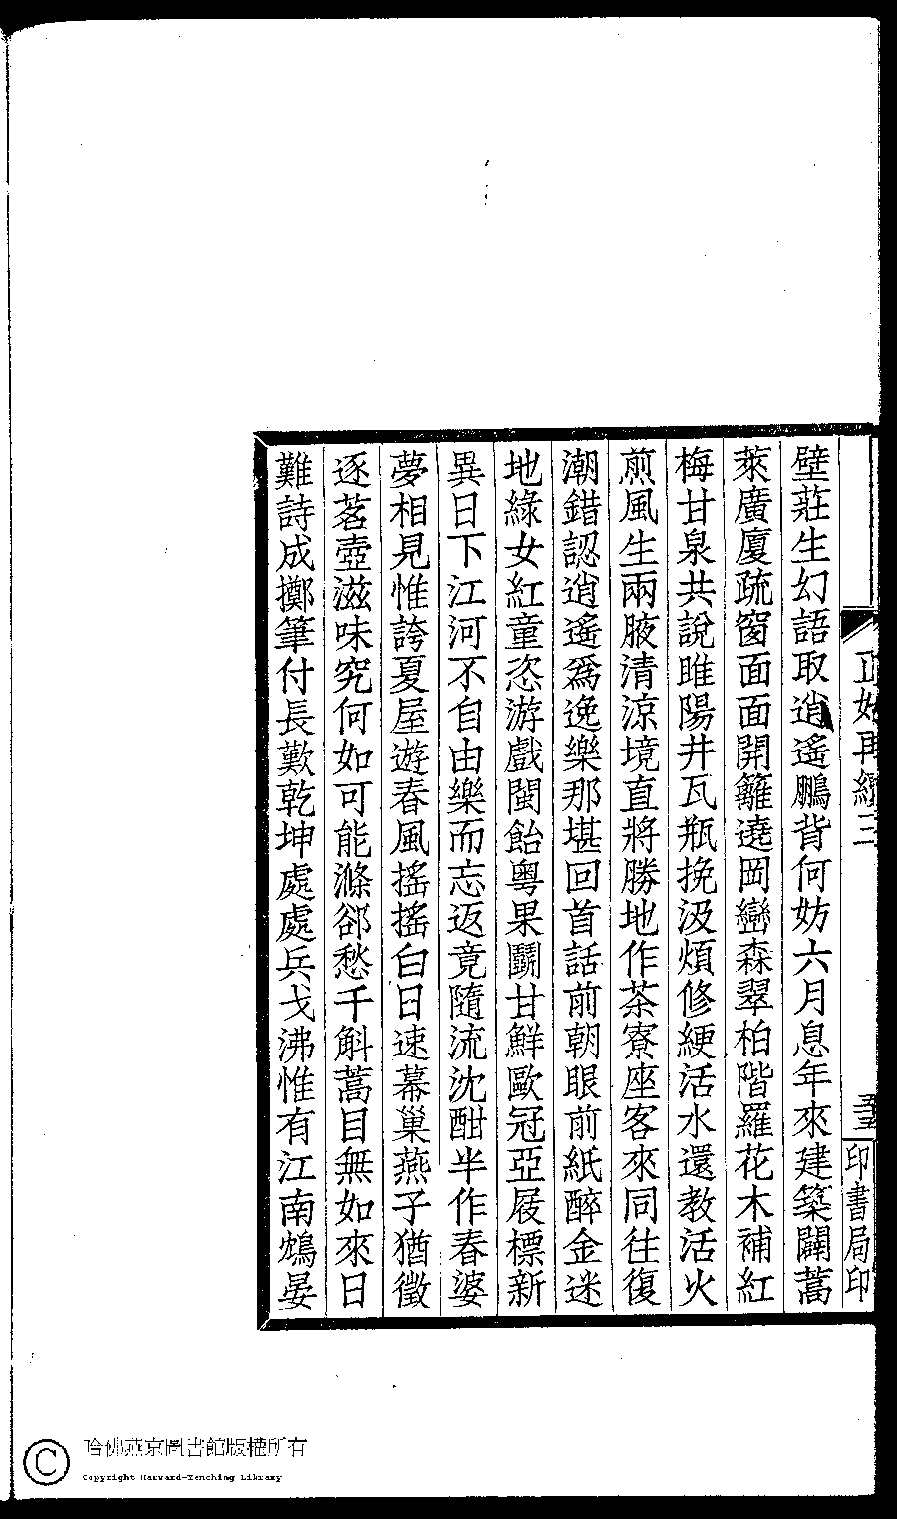 正始再續三
五
印書局印
壁莊生幻語取逍遙鵬背何妨六月息年來建築闢蒿
萊廣廈疏窗面面開籬遶岡巒森翠柏階羅花木補紅
梅甘泉共說雎陽井瓦瓶挽汲煩修綆活水還教活火
煎風生兩腋清涼境直將勝地作茶寮座客來同往復
潮錯認逍遙爲逸樂那堪回首話前朝眼前紙醉金迷
地綠女紅童恣游戲閩飴粵果鬭甘鮮歐冠亞屐標新
異日下江河不自由樂而忘返竟隨流沈酣半作春婆
夢相見惟誇夏屋遊春風搖搖白日速幕巢燕子猶徵
逐茗壺滋味究何如可能滌郤愁千斛蒿目無如來日
難詩成擲筆付長歎乾坤處處兵戈沸惟有江南鴆晏
哈佛燕京圖書館版權所有
Copyright Harvard-Yenching Library